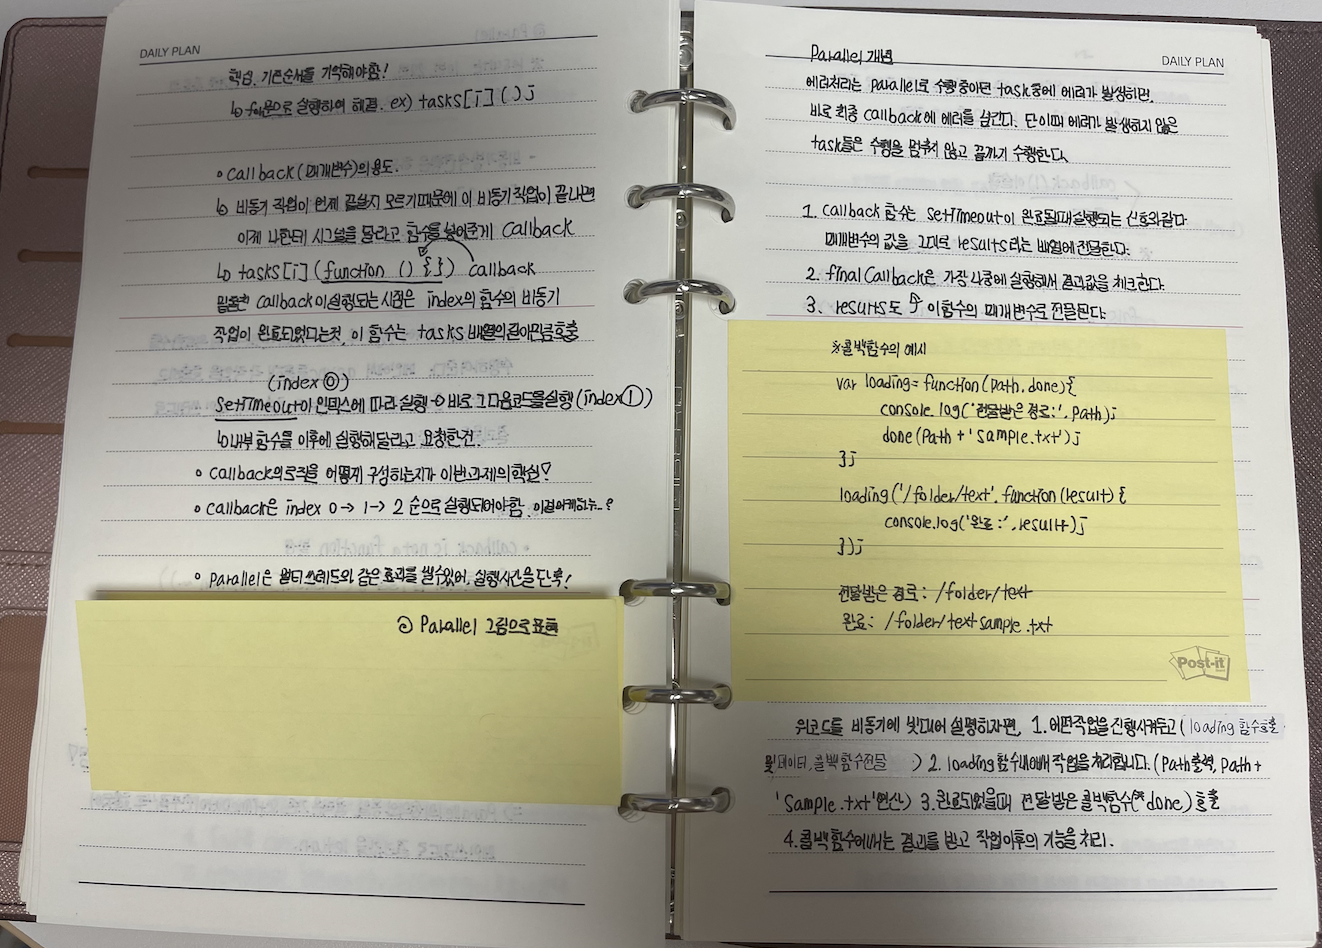 DAILY PLAN
핵심. 기존순서를 기억해야함!
↳ for문으로 실행하여 해결. ex) tasks[i]();
• callback(매개변수)의 용도.
↳ 비동기 작업이 언제 끝날지 모르기때문에 이 비동기작업이 끝나면
이제 나한테 시그널을 달라고 함수를 넣어준게 callback
↳ tasks[i](function () {}) callback
밑줄친 callback이 실행되는 시점은 index의 함수의 비동기
작업이 완료되었다는것, 이 함수는 tasks 배열의 길이만큼 호출
(index⓪)
SetTimeout이 인덱스에 따라 실행 → 바로 그다음코드를실행(index①)
↳ 내부 함수를 이후에 실행해달라고 요청한건.
• callback의 로직을 어떻게 구성하는지가 이번과제의 핵심!
• callback은 index 0 → 1 → 2 순으로 실행되어야함. 이걸어케하누..?
• Parallel은 멀티 쓰레드와 같은 효과를 낼수있어, 실행시간을 단축!
② Parallel 그림으로 표현
DAILY PLAN
Parallel 개념
에러처리는 Parallel로 수행중이던 task중에 에러가 발생하면,
바로 최종 callback에 에러를 넘긴다. 단 이때 에러가 발생하지 않은
task들은 수행을 멈추지 않고 끝까지 수행한다.
1. Callback 함수는 SetTimeout이 완료될때실행되는 신호와같다
매개변수의 값을 그대로 results라는 배열에 전달한다.
2. finalCallback은 가장 나중에 실행해서 결과값을 체크한다.
3. results도 이함수의 매개변수로 전달된다.
※콜백함수의 예시
var loading = function(path, done){
console.log('전달받은 경로:', Path);
done(Path + 'Sample.txt');
};
loading('/folder/text', function(result){
console.log('완료:', result);
});
전달받은 경로: /folder/text
완료: /folder/textsample.txt
Post-it
위코드를 비동기에 빗대어 설명하자면, 1.어떤작업을 진행시켜두고(loading 함수호출
및 데이터, 콜백함수전달 ) 2. loading 함수내에서 작업을 처리합니다.(Path출력, Path +
'Sample.txt' 연산) 3. 완료되었을때 전달받은 콜백함수(*done) 호출
4.콜백함수에서는 결과를 받고 작업이후의 기능을 처리.